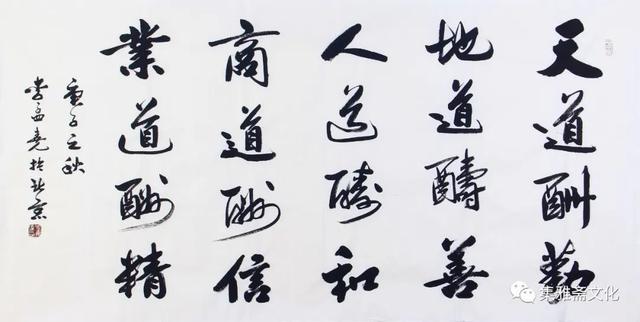 天道酬勤
地道酬善
人道酬和
商道酬信
業道酬精
庚子之秋
李孟尧於北京
集雅斋文化